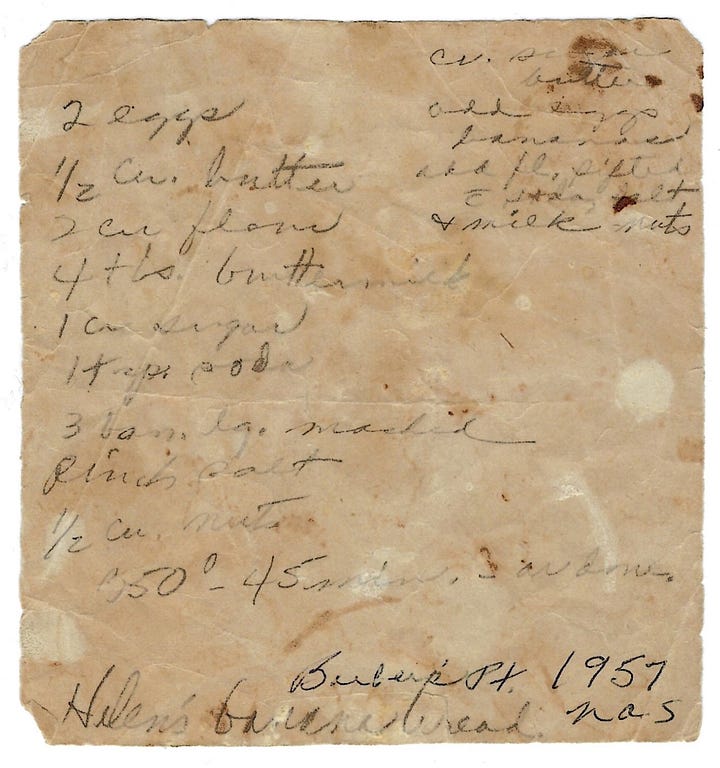 2 eggs
1/2 cu. butter
2 cu flour
4 tbs. buttermilk
1 cu sugar
1 tsp. soda
3 ban. lg. mashed
Pinch salt
1/2 cu. nuts
350° - 45 min. or done.
cr. sugar
butter
add eggs
bananas
add fl. sifted
c̄ soda, salt
& milk nuts
Pt. 1957
Helen's banana bread. nas